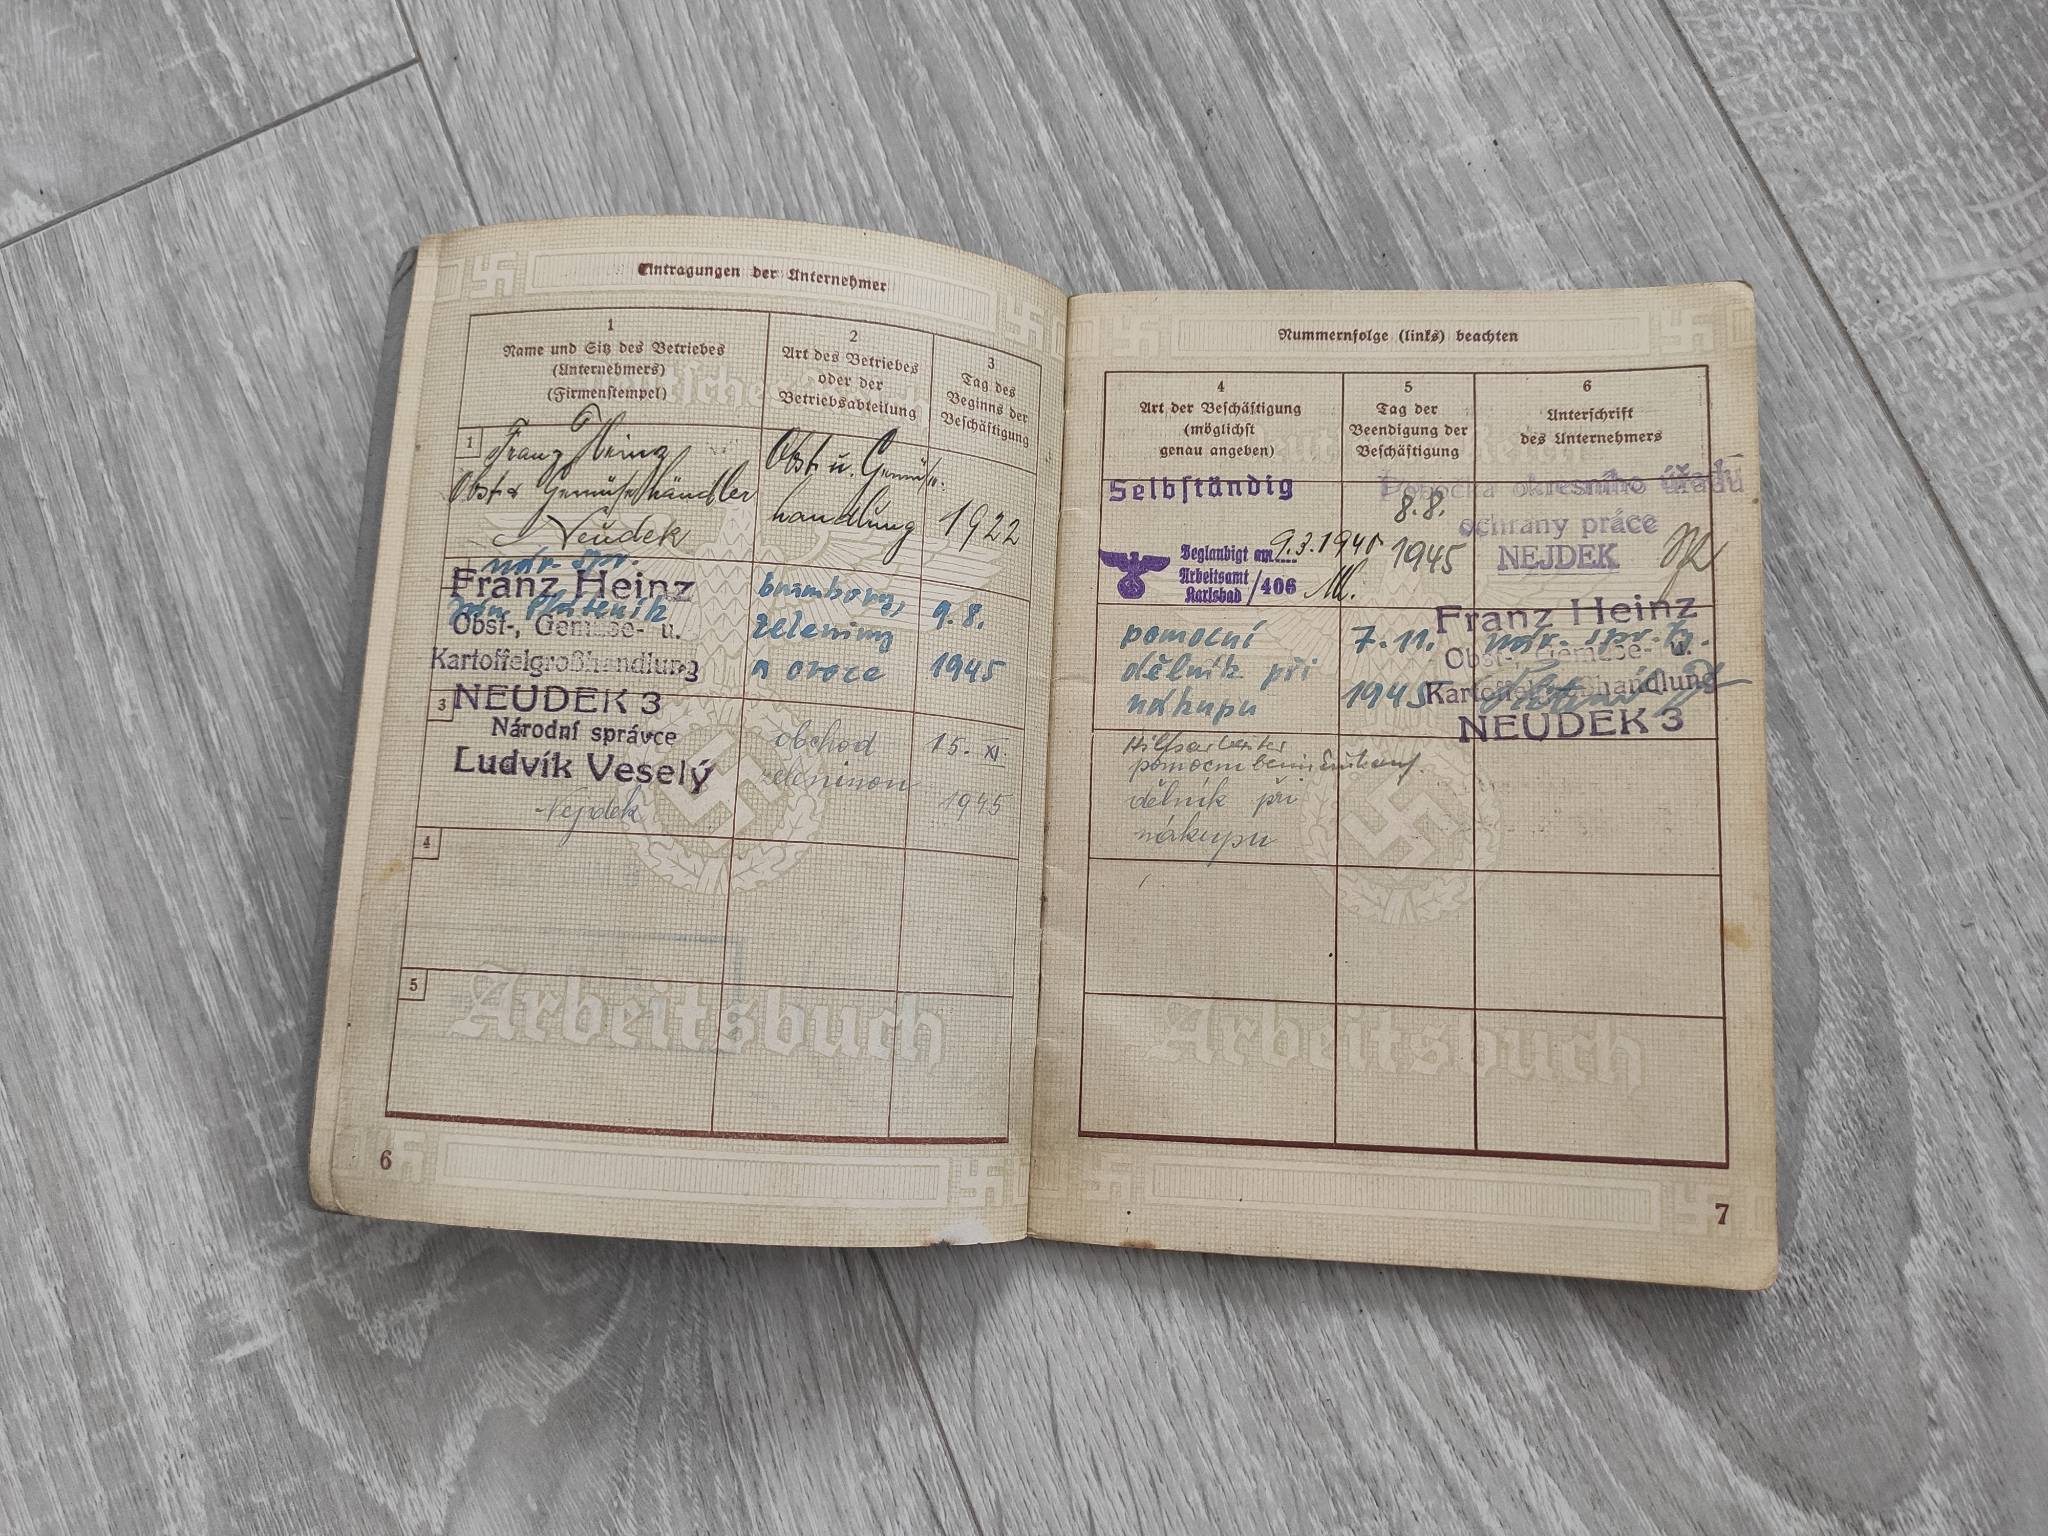 Eintragungen der Unternehmer
1
Name und Sitz des Betriebes
(Unternehmers)
(Firmenstempel)
2
Art des Betriebes
oder der
Betriebsabteilung
3
Tag des
Beginns der
Beschäftigung
1
Franz Heinz
Obst & Gemüsehändler
Neudek
Obst u. Gemüse
handlung
1922
nár. spr.
Franz Heinz
Jan
Obst-, Gemüse- u.
Kartoffelgroßhandlung
NEUDEK 3
brambory,
zeleniny
a ovoce
9.8.
1945
3
Národní správce
Ludvík Veselý
Nejdek
obchod
zeleninou
15. XI.
1945
4
5
Arbeitsbuch
6
Nummernfolge (links) beachten
4
Art der Beschäftigung
(möglichst
genau angeben)
5
Tag der
Beendigung der
Beschäftigung
6
Unterschrift
des Unternehmers
Selbständig
Beglaubigt am 9.3.1940
Arbeitsamt
Karlsbad /406
8.8.
1945
Pobočka okresního úřadu
ochrany práce
NEJDEK
pomocní
dělník při
nákupu
7.11.
1945
Franz Heinz
nár. spr.
Obst-, Gemüse- u.
Kartoffelgroßhandlung
NEUDEK 3
Hilfsarbeiter
pomocní beim Einkauf.
dělník při
nákupu
Arbeitsbuch
7